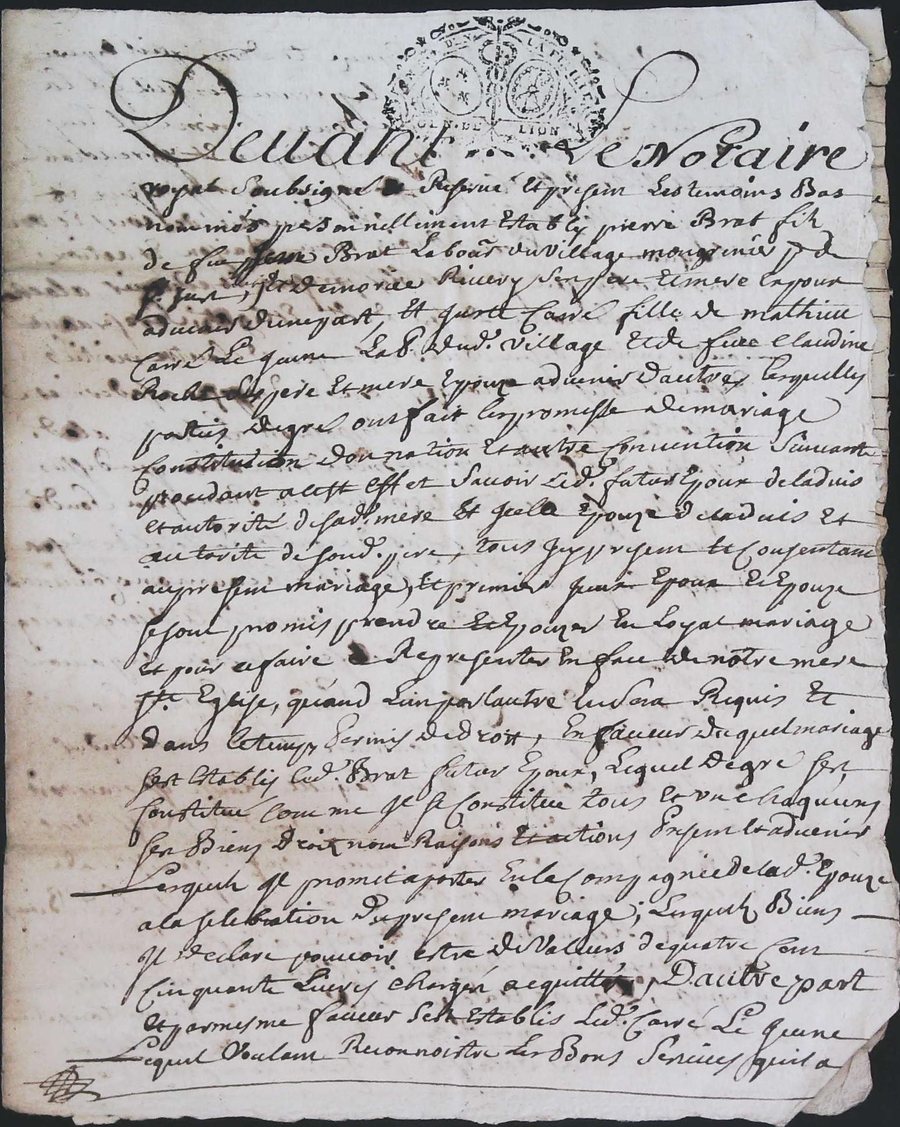 GEN. DE LION
Devant Le Notaire
royal Soubsigné Reservé Et présent Les temoins Bas
nommés personnellement Establi pierre Brat fils
de feu Brat Labour du village mongrinier pde
st Just, Et de Rivery Ses pere Et mere Epoux
advenir d'une part, Et Carré fille de mathieu
Carré Le Jeune Lab. dud. village Et de feue Claudine
Roche Ses pere Et mere Epouze advenir d'autre, lesquelles
parties degré ont fait les promesse de mariage
Constitution donnation Et autre Convention Suivante
procedant a cest Effet Savoir Led. futur Epoux de ladvis
et autorité de sad. mere Et Jcelle Epouze de ladvis Et
autorité de sond. pere, tous Jcy présent Et Consentant
au présent mariage, Et premier Epoux Et Epouze
se sont promis prendre Et Epouzer En Loyal mariage
et pour ce faire Representer En face de notre mere
Ste Eglise, quand L'un par l'autre En sera Requis Et
dans le temps permis de droit, En faveur duquel mariage
sest Etablis Led. Brat futur Epoux, Lequel degré sest
Constitué Comme Jl se Constitue tous Et un chaquuns
ses Biens Droit nom Raisons Et actions present Et advenir
Lesquels Jl promet aporter En la Compagnie de lad. Epouze
a la selebration du présent mariage, Lesquels Biens
Jl declare pouvoir estre de Valeurs de quatre Cent
Cinquante Livres charges aquittés, D'autre part
Et par mesme faveur sest Establis Led. Carré Le Jeune
Lequel Voulant Reconnoistre Les Bons Services quil a